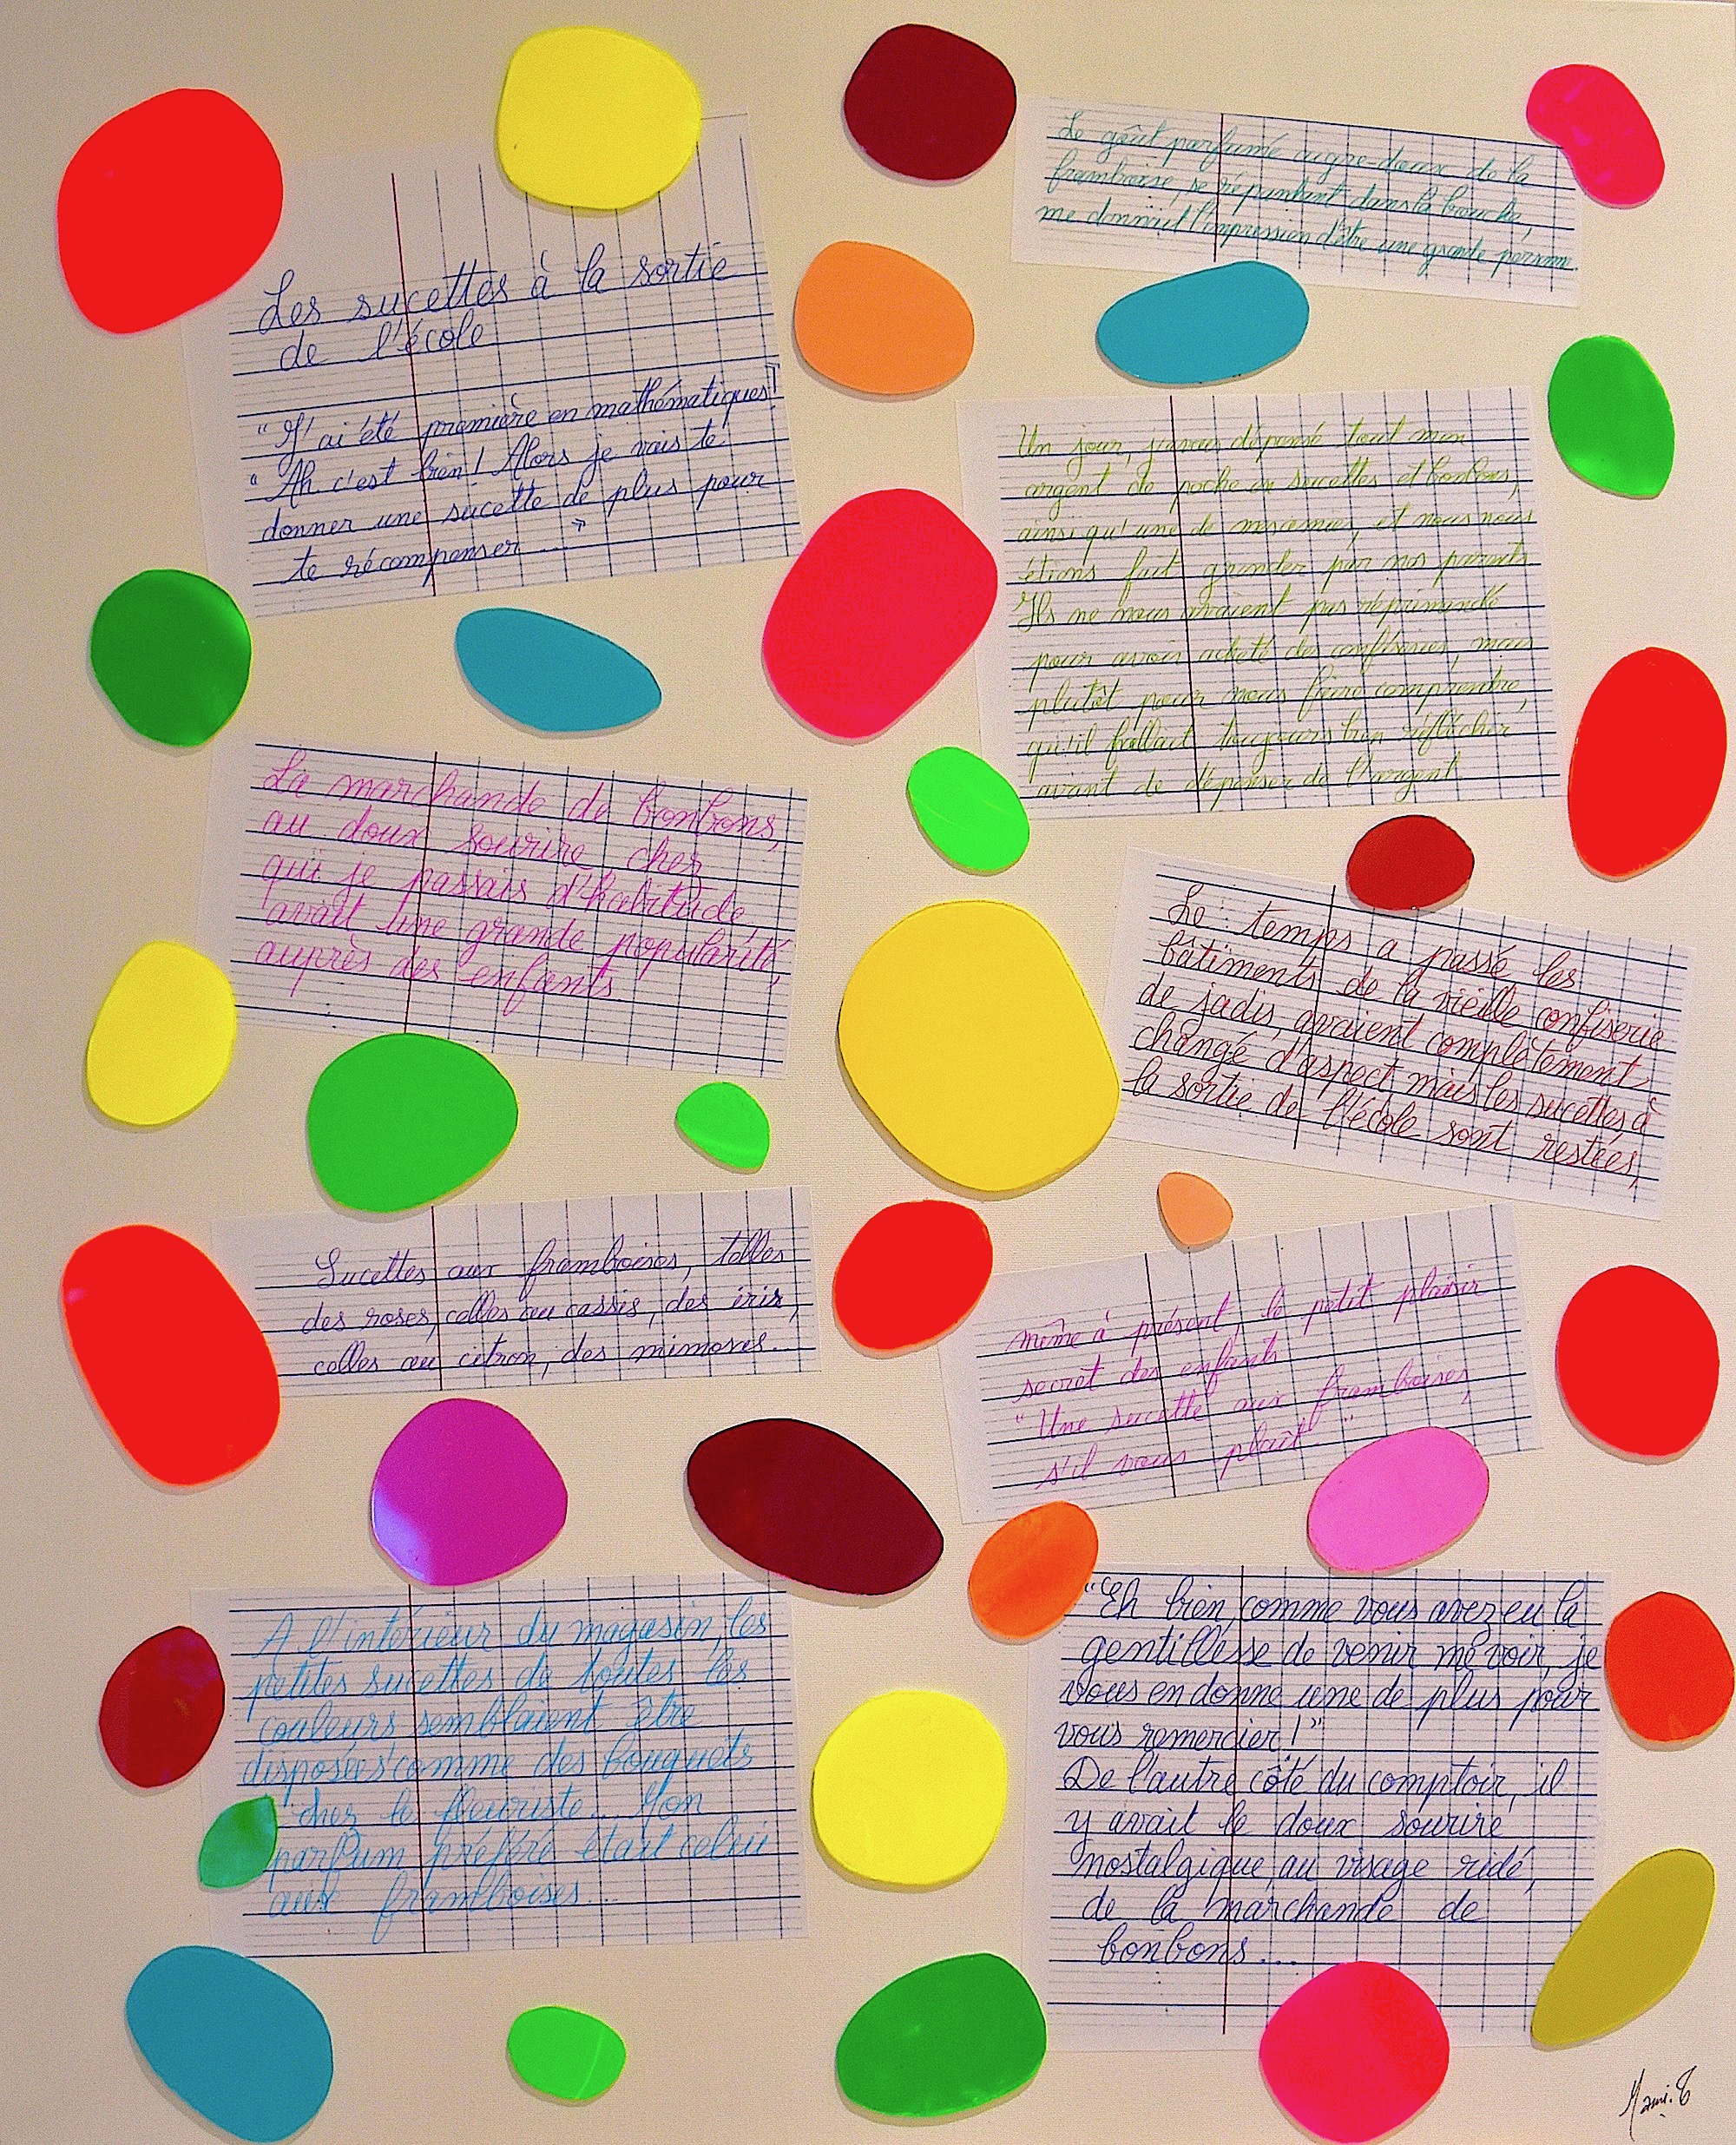 Les sucettes à la sortie
de l'école
"J'ai été première en mathématiques!
"Ah c'est bien! Alors je vais te
donner une sucette de plus pour
te récompenser..."
La marchande de bonbons,
au doux sourire, chez
qui je passais d'habitude,
avait une grande popularité,
auprès des enfants
Sucettes aux framboises, telles
des roses, celles au cassis, des iris,
celles au citron, des mimosas...
A l'intérieur du magasin, les
petites sucettes de toutes les
couleurs semblaient être
disposées comme des bouquets
chez le fleuriste... Mon
parfum préféré était celui
aux framboises...
Le goût parfumé aigre-doux de la
framboise, se répandant dans la bouche,
me donnait l'impression d'être une grande personne.
Un jour, j'avais dépensé tout mon
argent de poche en sucettes et bonbons,
ainsi qu'une de mes amies, et nous nous
étions fait gronder par nos parents
Ils ne nous avaient pas réprimandé
pour avoir acheté des confiseries, mais
plutôt pour nous faire comprendre,
qu'il fallait toujours bien réfléchir
avant de dépenser de l'argent
Le temps a passé les
bâtiments de la vieille confiserie
de jadis, avaient complètement
changé d'aspect mais les sucettes à
la sortie de l'école sont restées,
même à présent, le petit plaisir
secret des enfants
"Une sucette aux framboises,
s'il vous plaît."
"Eh bien, comme vous avez eu la
gentillesse de venir me voir, je
vous en donne une de plus pour
vous remercier!"
De l'autre côté du comptoir, il
y avait le doux sourire
nostalgique, au visage ridé,
de la marchande de
bonbons...